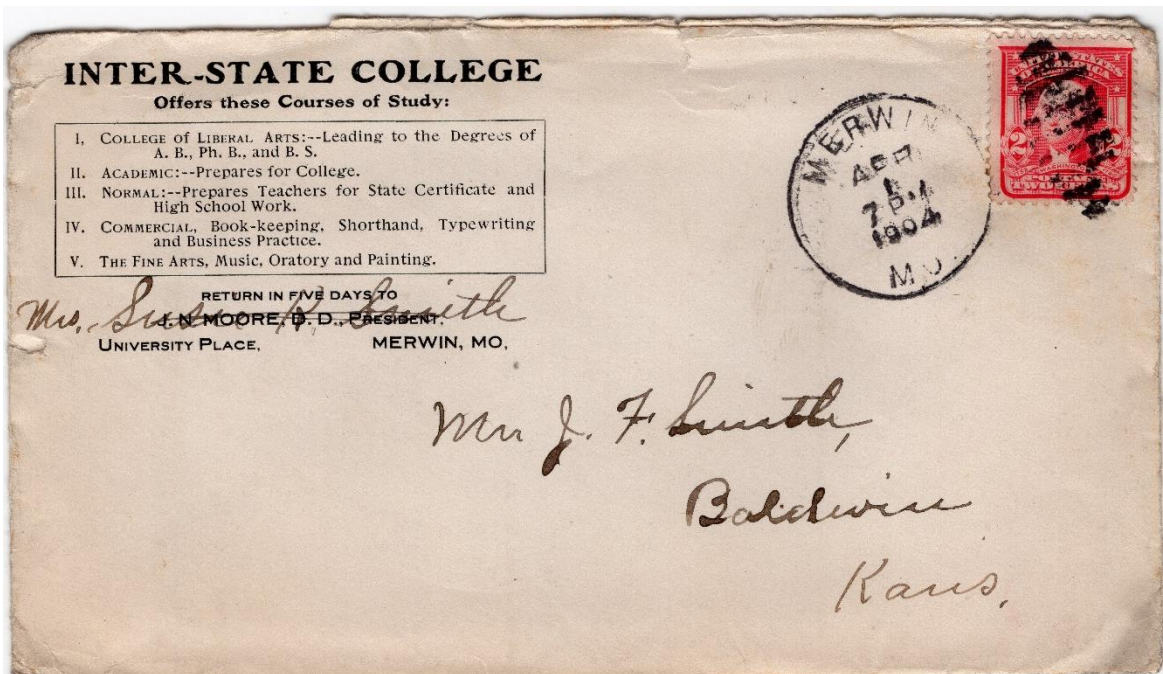 INTER-STATE COLLEGE
Offers these Courses of Study:
I, COLLEGE OF LIBERAL ARTS:--Leading to the Degrees of
A. B., Ph. B., and B. S.
II. ACADEMIC:--Prepares for College.
III. NORMAL:--Prepares Teachers for State Certificate and
High School Work.
IV. COMMERCIAL, Book-keeping, Shorthand, Typewriting
and Business Practice.
V. THE FINE ARTS, Music, Oratory and Painting.
RETURN IN FIVE DAYS TO
Mrs. Susie Smith
J. N. MOORE, D. D., PRESIDENT,
UNIVERSITY PLACE, MERWIN, MO,
MERWIN
APR
1904
MO.
UNITED STATES
OF AMERICA
2 2
TWO CENTS
Mr J. F. Smith,
Baldwin
Kans.